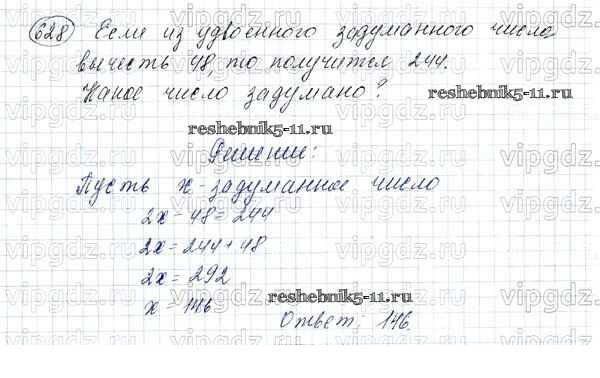 628 Если из удвоенного задуманного числа
вычесть 48, то получится 244.
Какое число задумано?
reshebnik5-11.ru
reshebnik5-11.ru
Решение:
Пусть x - задуманное число
2x - 48 = 244
2x = 244 + 48
2x = 292
x = 146
reshebnik5-11.ru
Ответ: 146
vipgdz.ru